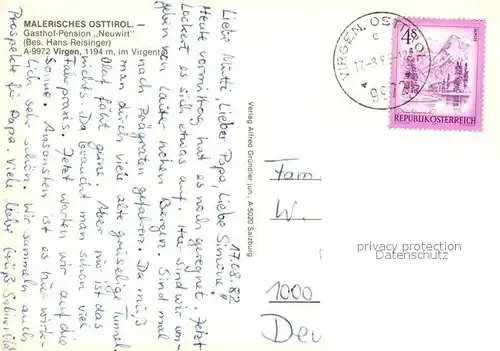 MALERISCHES OSTTIROL. —
Gasthof-Pension „Neuwirt"
(Bes. Hans Reisinger)
A-9972 Virgen, 1194 m, im Virgental
17.08.82
Liebe Mutti, lieber Papa, liebe Simone!
Heute vormittag hat es noch geregnet. Jetzt
lockert es sich etwas auf. Hier sind wir um-
geben von lauter hohen Bergen. Sind mal
nach Prägraten gefahren. Da muß
man durch viele alte greuelige Tunnel.
Olaf fährt gerne. Aber mir ist das
nichts. Da braucht man schon viel
Fahrpraxis. Jetzt warten wir auf die
Sonne. Ansonsten ist es hier wirk-
lich sehr schön. Wir sammeln auch
Prospekte für Papa. Viele liebe Grüße Sabine
Verlag Alfred Gründler jun., A-5020 Salzburg
VIRGEN, OSTTIROL
c
9972
4S
REPUBLIK ÖSTERREICH
Fam.
W.
privacy protection
Datenschutz
1000